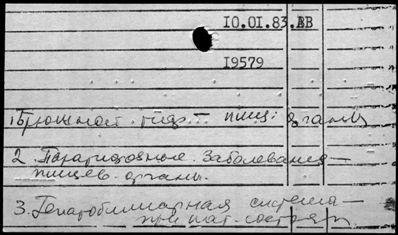 10.01.83.ВВ
19579
1. Брюшной тиф — пищ. органы
2. Паратифозные заболевания —
пищев. органы.
3. Гепатобилиарная система —
при пат. состоян.